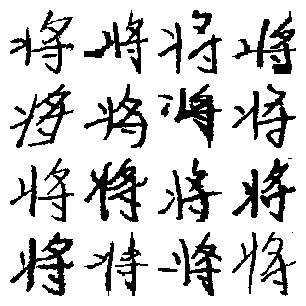 将将将将
将将将将
将将将将
将将将将